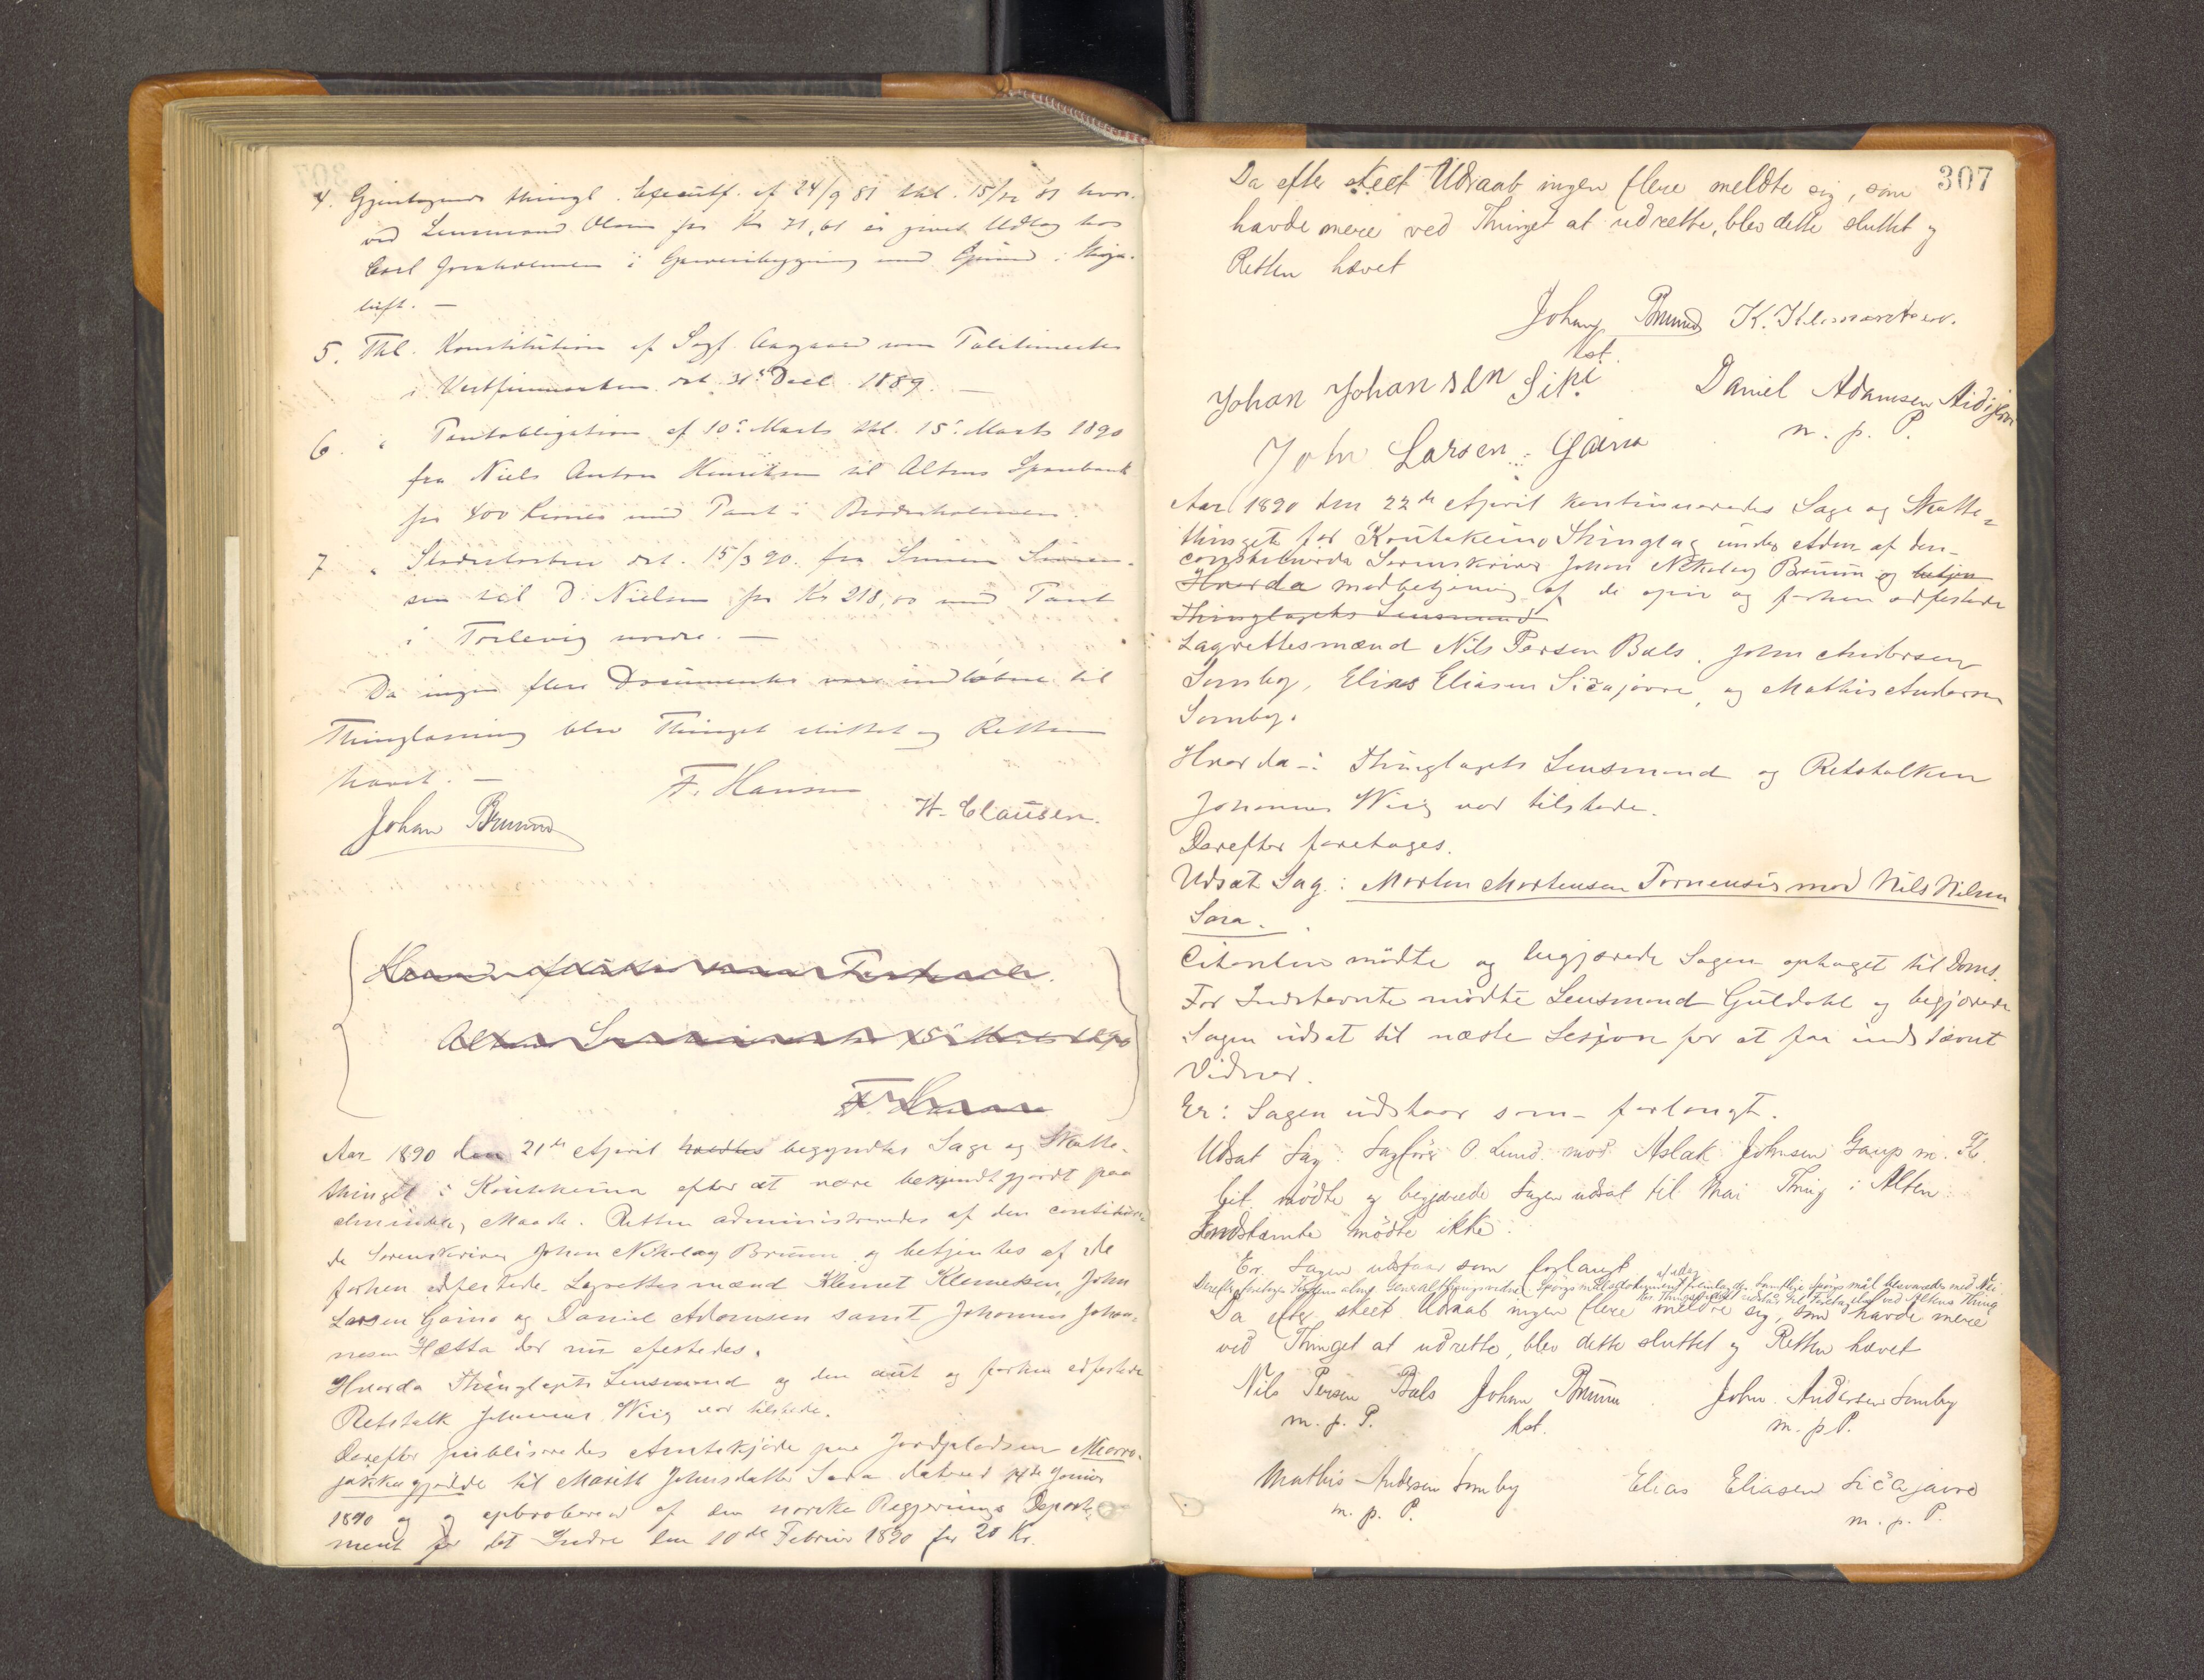 4. Gjentagende thingl. Executf. af 24/9 81 thl. 15/12 81 hvor-
ved Lensmand Olsen for Kr 71,61 er givet Udlag hos
Carl i med Grund i
luft. —
5. Thl. Konstitution af Sagf. Aagaard som Politimester
i Vestfinmarken dat. 31te Decb. 1889. —
6. " Pantobligation af 10de Marts thl. 15de Marts 1890
fra Niels Anton Henriksen til Altens Sparebank
for 400 Kroner med Pant i
7 " Skadesløsbrev dat. 15/3 90. fra Simon Simon-
sen til D. Nielsen for Kr 218,00 med Pant
i Torlevig nordre. —
Da ingen flere Documenter vare indløbne til
Thinglæsning blev Thinget sluttet og Retten
hævet. —
F. Hansen
Johan Brunn
H. Clausen.
F. Hansen
Aar 1890 den 21de April holdtes begyndtes Sage og Skatte-
thinget i Koutokeino efter at være bekjendtgjordt paa
almindelig Maade. Retten administreredes af den constituere-
de Sorenskriver Johan Nikolay Brunn og betjentes af de
forhen edfestede Lagrettesmænd Klemet Klemetsen, John
Larsen Gaino og Daniel Adamsen samt Johannes Johan-
nesen Hætta der nu efestedes.
Hvorda Thinglagets Lensmand og den ant og forhen edfestede
Retstolk Johannes Wiig var tilstede.
Derefter publiseredes Amtskjøde paa Jordpladsen Mierro-
jokkagjædde til Marith Johnsdatter Sara dateret 14de Januar
1890 og og approberet af den norske Regjerings Departe-
ment for det Indre den 10de Februar 1890 for 20 Kr.
307
Da efter skeet Udraab ingen flere meldte sig, som
havde mere ved Thinget at udrette, blev dette sluttet og
Retten hævet
Johan Brunn K. Klemetsen.
kst.
Johan Johansen Siri Daniel Adamsen
John Larsen Gaino m. p. P.
Aar 1890 den 22de April kontinueredes Sage og Skatte-
thinget for Koutokeino Thinglag under Adm. af den
constituerede Sorenskriver Johan Nikolay Brunn og betjen
Hvorda medbetjening af de og forhen edfestede
Thinglagets Lensmand
Lagrettesmænd Nils Persen Bals, John Andersen
Somby, Elias Eliasen Sičajavre, og Mathis Andersen
Somby.
Hvorda : Thinglagets Lensmand og Retstolken
Johannes Wiig var tilstede.
Derefter foretoges.
Udsat Sag: Morten Mortensen Tornensis mod Nils Nilsen
Sara.
Citanten mødte og begjærede Sagen optaget til Doms.
For Indstevnte mødte Lensmand Guldahl og begjærede
Sagen udsat til næste Session for at faa indstævnt
Vidner.
Er: Sagen udstaar som forlangt.
Udsat Sag: Sagfører O. Lund mod Aslak Johnsen Gaup m. Fl.
Cit. mødte og begjærede Sagen udsat til Mai Thing i Alten.
Indstævnte mødte ikke.
Er. Sagen udstaar som forlangt
Da efter skeet Udraab ingen flere meldte sig, som havde mere
ved Thinget at udrette, blev dette sluttet og Retten hævet
Nils Persen Bals Johan Brunn John Andersen Somby
m. p. P. kst. m. p. P.
Mathis Andersen Somby Elias Eliasen Sičajavre
m. p. P. m. p. P.